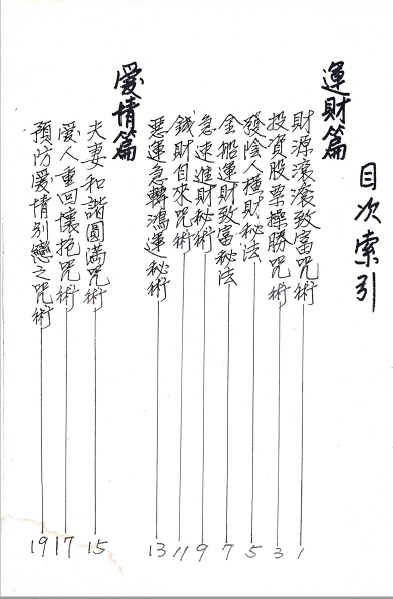 目次索引
運財篇
財源滾滾致富咒術 1
投資股票操勝咒術 3
發陰人橫財秘法 5
金船運財致富秘法 7
急速進財秘術 9
錢財自來咒術 11
惡運急轉鴻運秘術 13
愛情篇
夫妻和諧圓滿咒術 15
愛人重回懷抱咒術 17
預防愛情別戀之咒術 19